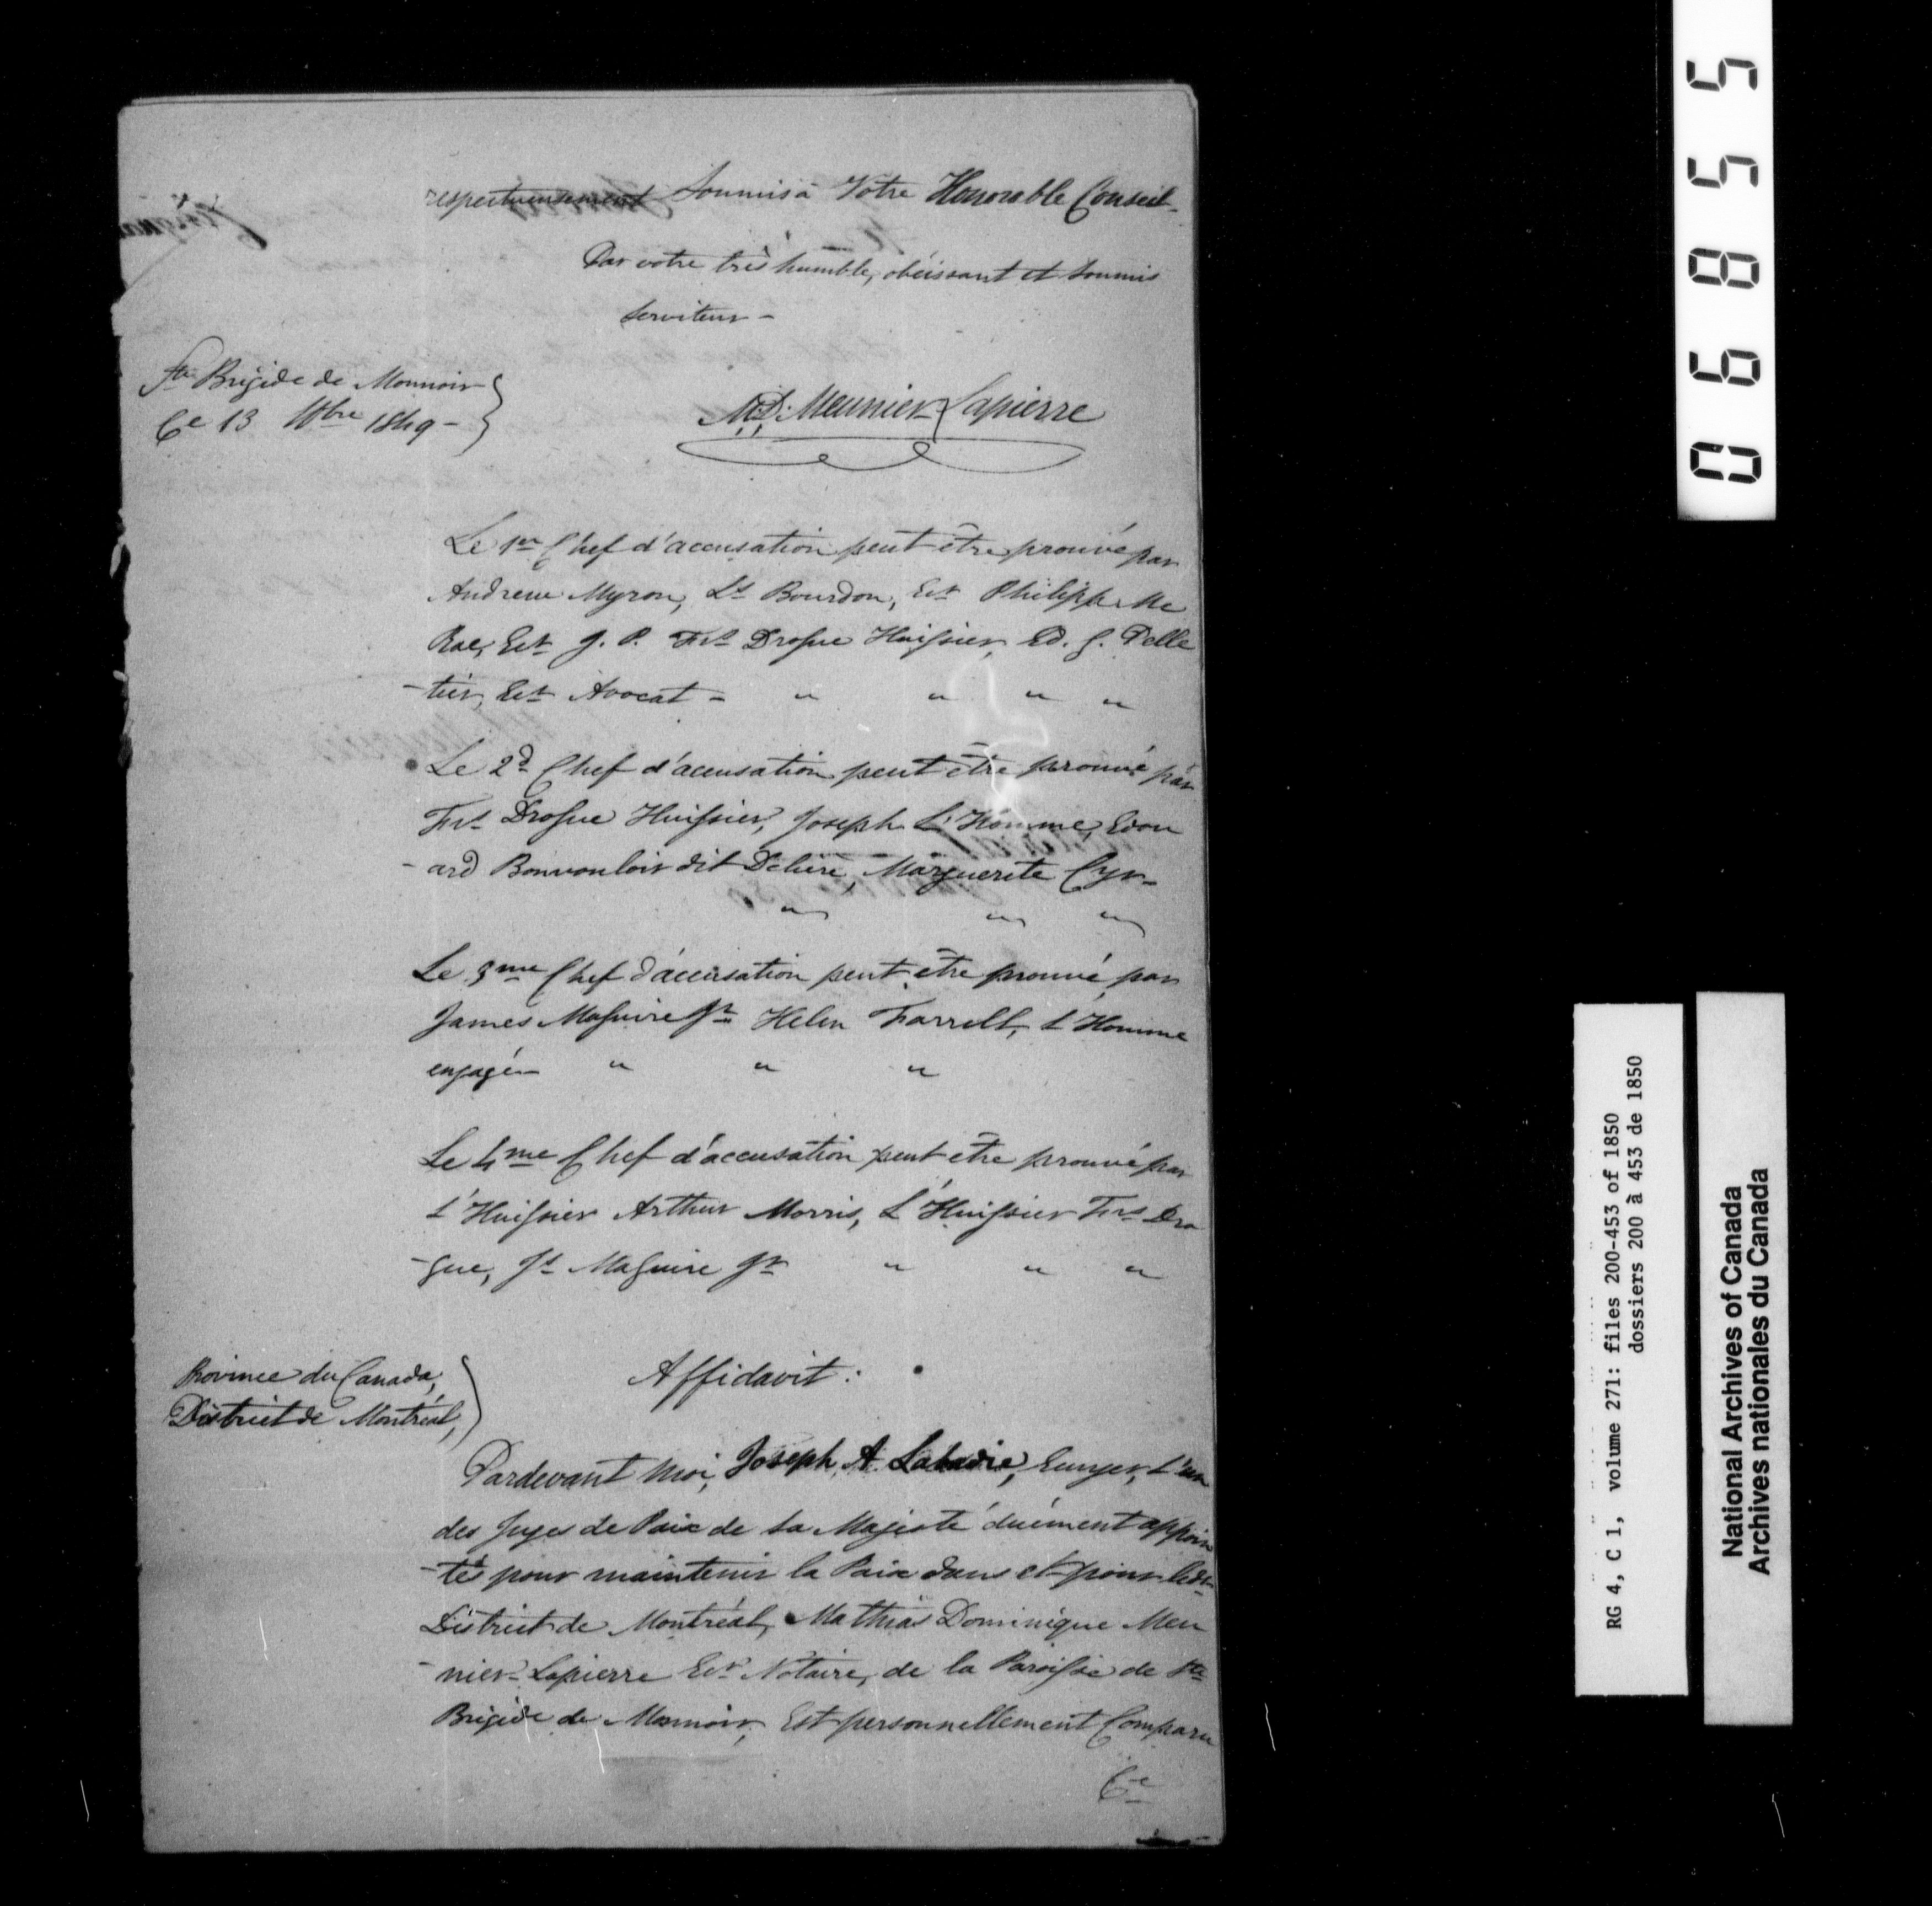 respectueusement Soumis à Votre Honorable Conseil-
Par votre très humble, obéissant et soumis
serviteur -
Ste Brigide de Monnoir
Ce 13 10bre 1849 -
M. D. Meunier-Lapierre
Le 1er Chef d'accusation peut être prouvé par
Andrew Myron, Ls Bourdon, Ecr Philipp Mc
Rae, Ecr J. P. Frs Drogue Huissier, Ed. G. Pelle
-tier, Ecr Avocat - " " " "
Le 2d Chef d'accusation peut être prouvé par
Frs Drogue Huissier, Joseph L'Homme, Edou
-ard Bonvouloir dit Delière, Marguerite Cyr-
" " "
Le 3me Chef d'accusation peut être prouvé par
James Maguire Jr Helen Farrell, l'Homme
engagé - " " "
Le 4me Chef d'accusation peut être prouvé par
l'Huissier Arthur Morris, L'Huissier Frs Dro
-gue, Js Maguire Jr " " "
Province du Canada,
District de Montréal,
Affidavit :
Pardevant moi, Joseph A. Labadie, Ecuyer, l'un
des Juges de Paix de Sa Majesté duement appoin
-tés pour maintenir la Paix dans et pour ledt
District de Montréal, Mathias Dominique Meu
-nier-Lapierre Ecr Notaire, de la Paroisse de Ste
Brigide de Monnoir, Est personnellement Comparu
Ce
06855
RG 4, C 1, volume 271: files 200-453 of 1850
dossiers 200 à 453 de 1850
National Archives of Canada
Archives nationales du Canada